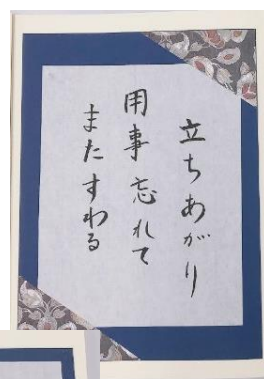 立ちあがり
用事忘れて
またすわる